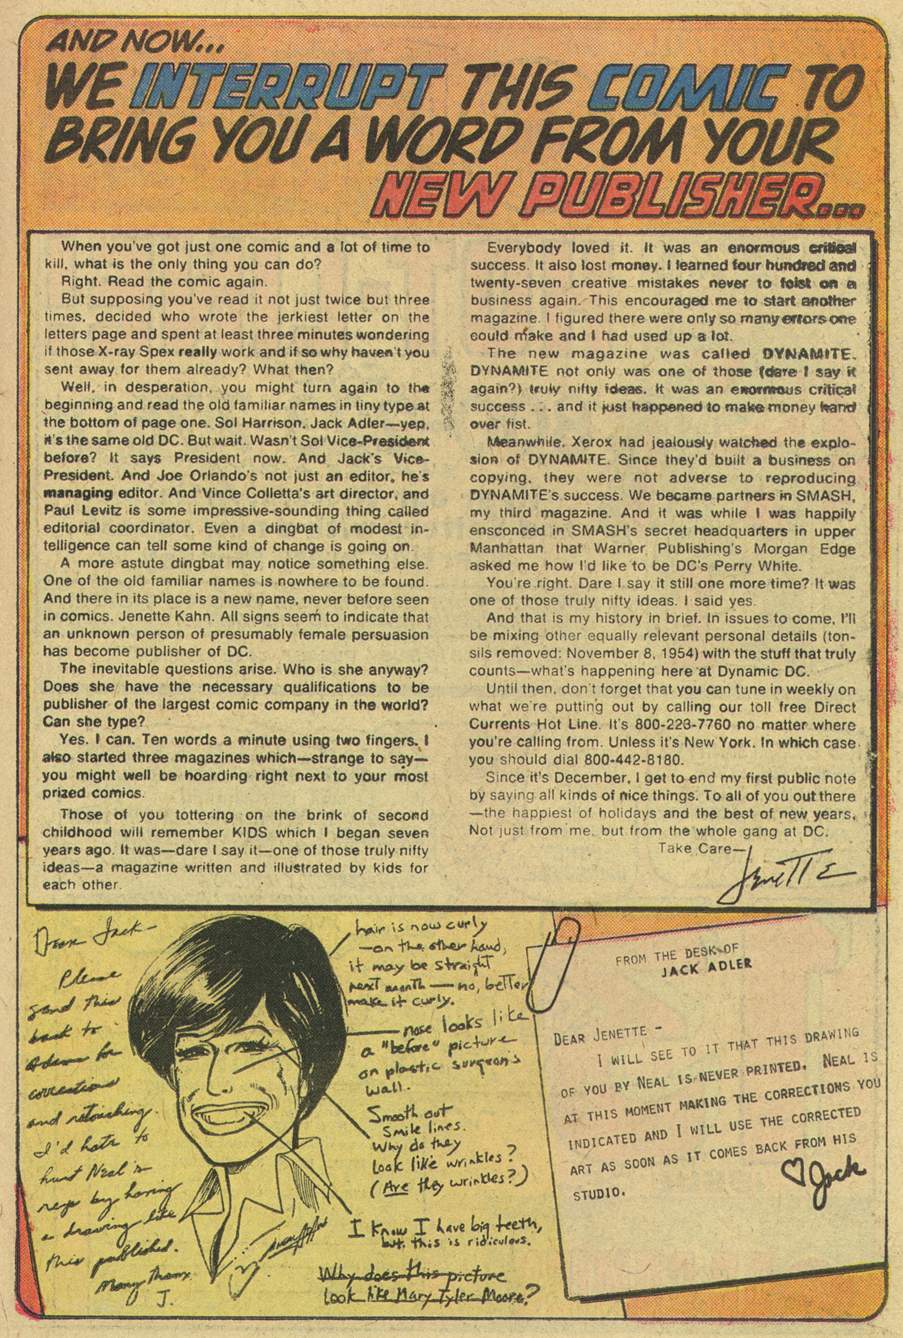 AND NOW...
WE INTERRUPT THIS COMIC TO
BRING YOU A WORD FROM YOUR
NEW PUBLISHER...
When you've got just one comic and a lot of time to
kill, what is the only thing you can do?
Right. Read the comic again.
But supposing you've read it not just twice but three
times, decided who wrote the jerkiest letter on the
letters page and spent at least three minutes wondering
if those X-ray Spex really work and if so why haven't you
sent away for them already? What then?
Well, in desperation, you might turn again to the
beginning and read the old familiar names in tiny type at
the bottom of page one. Sol Harrison, Jack Adler—yep,
it's the same old DC. But wait. Wasn't Sol Vice-President
before? It says President now. And Jack's Vice-
President. And Joe Orlando's not just an editor, he's
managing editor. And Vince Colletta's art director, and
Paul Levitz is some impressive-sounding thing called
editorial coordinator. Even a dingbat of modest in-
telligence can tell some kind of change is going on.
A more astute dingbat may notice something else.
One of the old familiar names is nowhere to be found.
And there in its place is a new name, never before seen
in comics. Jenette Kahn. All signs seem to indicate that
an unknown person of presumably female persuasion
has become publisher of DC.
The inevitable questions arise. Who is she anyway?
Does she have the necessary qualifications to be
publisher of the largest comic company in the world?
Can she type?
Yes. I can. Ten words a minute using two fingers. I
also started three magazines which—strange to say—
you might well be hoarding right next to your most
prized comics.
Those of you tottering on the brink of second
childhood will remember KIDS which I began seven
years ago. It was—dare I say it—one of those truly nifty
ideas—a magazine written and illustrated by kids for
each other.
Everybody loved it. It was an enormous critical
success. It also lost money. I learned four hundred and
twenty-seven creative mistakes never to foist on a
business again. This encouraged me to start another
magazine. I figured there were only so many errors one
could make and I had used up a lot.
The new magazine was called DYNAMITE.
DYNAMITE not only was one of those (dare I say it
again?) truly nifty ideas. It was an enormous critical
success . . . and it just happened to make money hand
over fist.
Meanwhile, Xerox had jealously watched the explo-
sion of DYNAMITE. Since they'd built a business on
copying, they were not adverse to reproducing
DYNAMITE's success. We became partners in SMASH,
my third magazine. And it was while I was happily
ensconced in SMASH's secret headquarters in upper
Manhattan that Warner Publishing's Morgan Edge
asked me how I'd like to be DC's Perry White.
You're right. Dare I say it still one more time? It was
one of those truly nifty ideas. I said yes.
And that is my history in brief. In issues to come, I'll
be mixing other equally relevant personal details (ton-
sils removed: November 8, 1954) with the stuff that truly
counts—what's happening here at Dynamic DC.
Until then, don't forget that you can tune in weekly on
what we're putting out by calling our toll free Direct
Currents Hot Line. It's 800-228-7760 no matter where
you're calling from. Unless it's New York. In which case
you should dial 800-442-8180.
Since it's December, I get to end my first public note
by saying all kinds of nice things. To all of you out there
—the happiest of holidays and the best of new years,
Not just from me, but from the whole gang at DC.
Take Care—
Jenette
Dear Jack-
Please
send this
back to
Adams for
corrections
and retouching.
I'd hate to
hurt Neal's
reps by having
a drawing like
this published.
Many thanx
J.
hair is now curly
—on the other hand,
it may be straight
next month — no, better
make it curly.
nose looks like
a "before" picture
on plastic surgeon's
wall.
Smooth out
smile lines.
Why do they
look like wrinkles?
(Are they wrinkles?)
I know I have big teeth,
but this is ridiculous.
Why does this picture
look like Mary Tyler Moore?
FROM THE DESK OF
JACK ADLER
DEAR JENETTE -
I WILL SEE TO IT THAT THIS DRAWING
OF YOU BY NEAL IS NEVER PRINTED. NEAL IS
AT THIS MOMENT MAKING THE CORRECTIONS YOU
INDICATED AND I WILL USE THE CORRECTED
ART AS SOON AS IT COMES BACK FROM HIS
STUDIO.
Jack